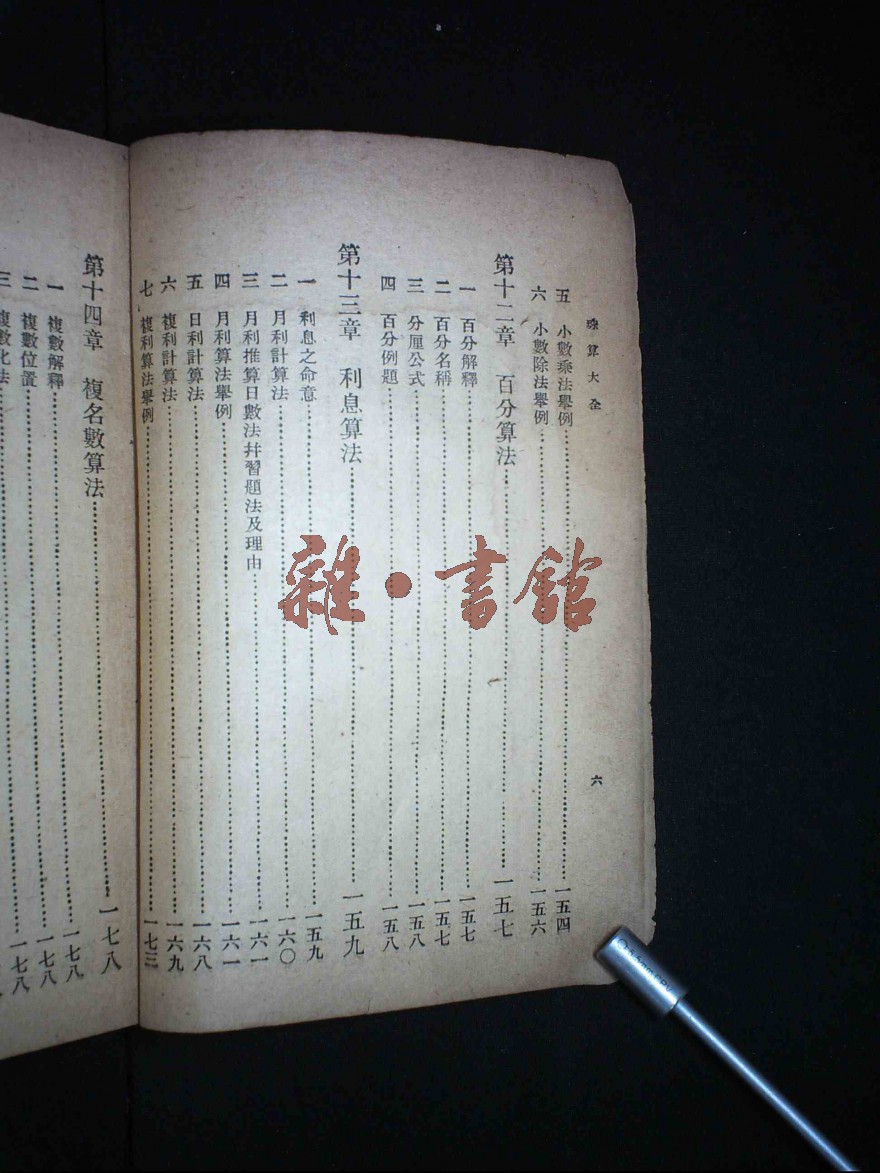 珠算大全
六
五 小數乘法舉例 一五四
六 小數除法舉例 一五六
第十二章 百分算法 一五七
一 百分解釋 一五七
二 百分名稱 一五七
三 分厘公式 一五八
四 百分例題 一五八
第十三章 利息算法 一五九
一 利息之命意 一五九
二 月利計算法 一六〇
三 月利推算日數法幷習題法及理由 一六一
四 月利算法舉例 一六一
五 日利計算法 一六八
六 複利計算法 一六九
七 複利算法舉例 一七三
第十四章 複名數算法 一七八
一 複數解釋 一七八
二 複數位置 一七八
三 複數化法 一七八
雜·書館